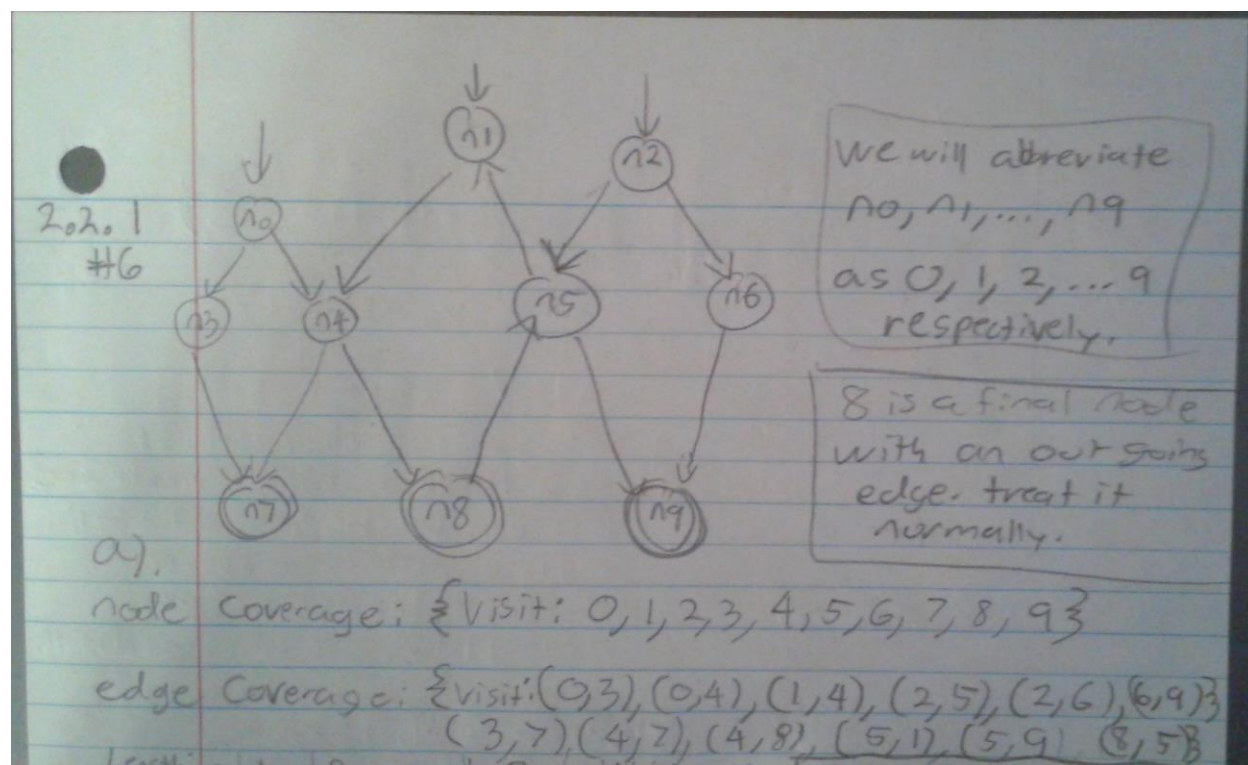 2.2.1
#6
n0
n1
n2
n3
n4
n5
n6
n7
n8
n9
we will abbreviate
n0, n1, ..., n9
as 0, 1, 2, ... 9
respectively.
8 is a final node
with an out going
edge. treat it
normally.
a).
node Coverage: {Visit: 0, 1, 2, 3, 4, 5, 6, 7, 8, 9}
edge Coverage: {visit: (0,3), (0,4), (1,4), (2,5), (2,6), (6,9)}
(3,7) (4,7), (4,8), (5,1), (5,9) (8,5)}